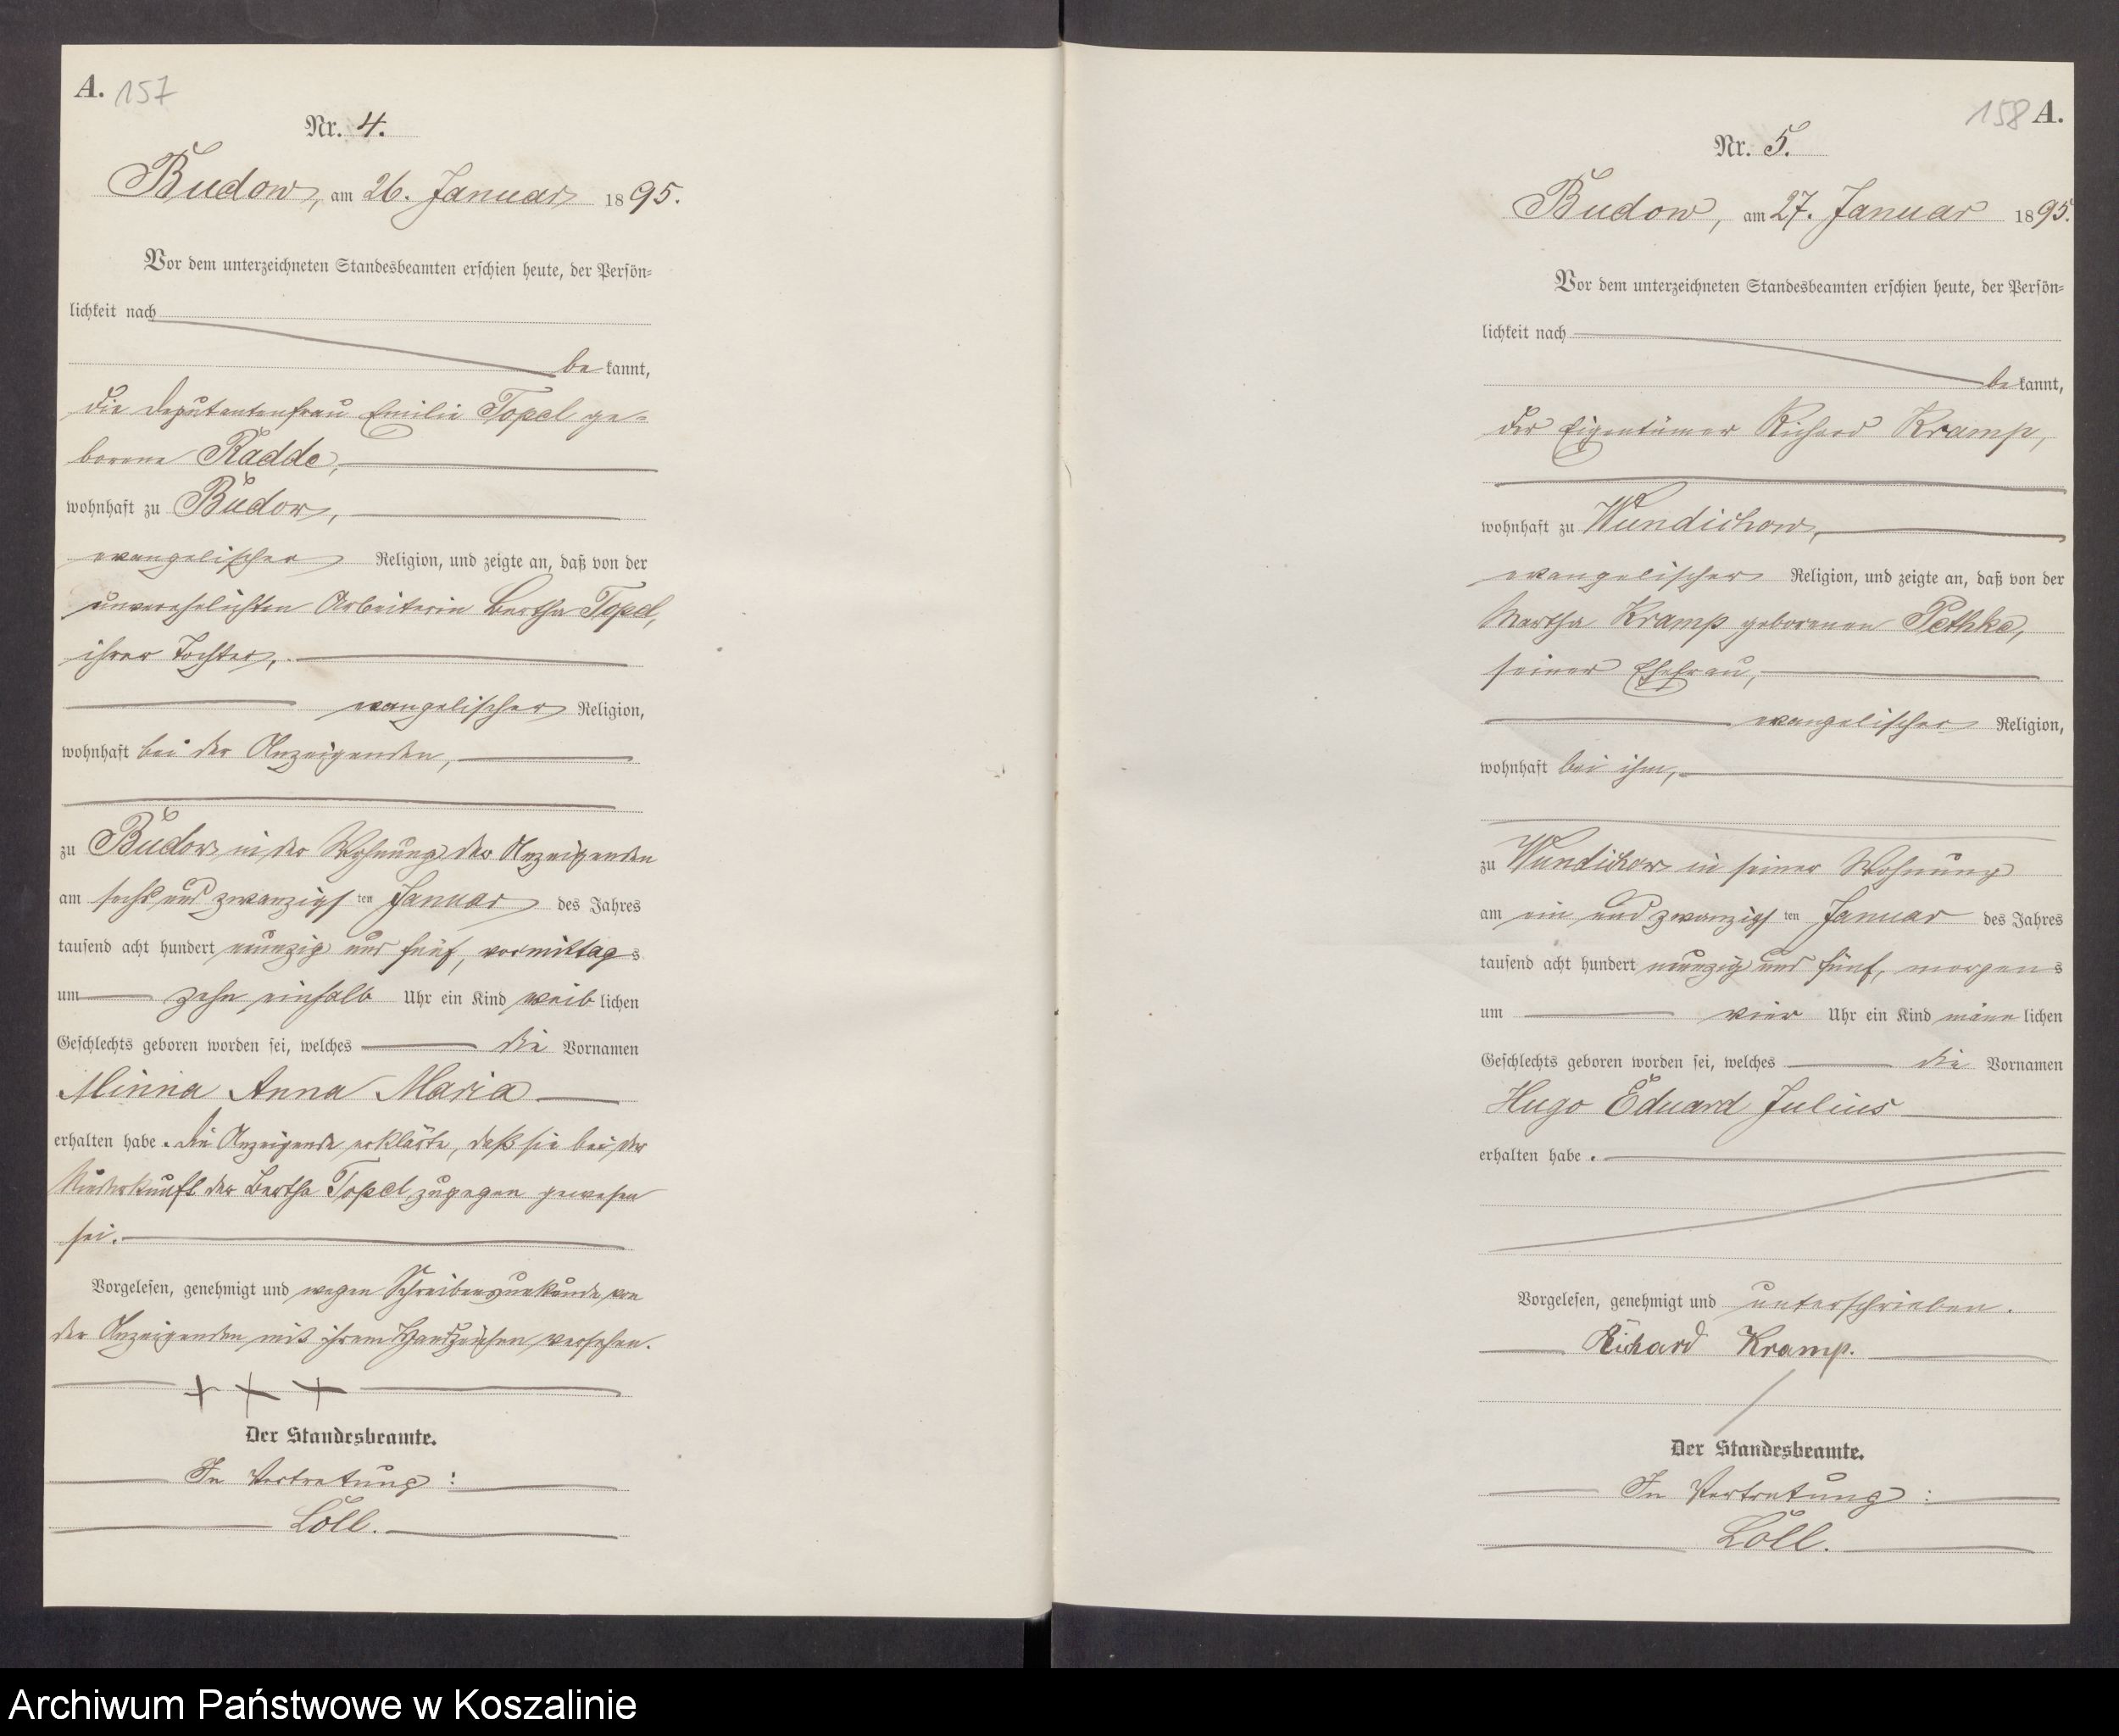 A. 157
Nr. 4.
Budow, am 26. Januar 1895.
Vor dem unterzeichneten Standesbeamten erschien heute, der Persön-
lichkeit nach
be kannt,
die Deputantenfrau Emilie Topel ge-
borene Radde,
wohnhaft zu Budow,
evangelischer Religion, und zeigte an, daß von der
unverehelichten Arbeiterin Bertha Topel,
ihrer Tochter,
evangelischer Religion,
wohnhaft bei der Anzeigenden,
zu Budow in der Wohnung der Anzeigenden
am sechs und zwanzigs ten Januar des Jahres
tausend acht hundert neunzig und fünf, vormittag s
um zehn einhalb Uhr ein Kind weib lichen
Geschlechts geboren worden sei, welches die Vornamen
Minna Anna Maria
erhalten habe. Die Anzeigende erklärte, daß sie bei der
Niederkunft der Bertha Topel zugegen gewesen
sei.
Vorgelesen, genehmigt und wegen Schreibensunkunde von
der Anzeigenden mit ihrem Handzeichen versehen.
+ + +
Der Standesbeamte.
In Vertretung:
Löll.
158 A.
Nr. 5.
Budow, am 27. Januar 1895.
Vor dem unterzeichneten Standesbeamten erschien heute, der Persön-
lichkeit nach
be kannt,
der Eigentümer Richard Kramp,
wohnhaft zu Wundichow,
evangelischer Religion, und zeigte an, daß von der
Martha Kramp geborenen Pethke,
seiner Ehefrau,
evangelischer Religion,
wohnhaft bei ihm,
zu Wundichow in seiner Wohnung
am ein und zwanzigs ten Januar des Jahres
tausend acht hundert neunzig und fünf, morgen s
um vier Uhr ein Kind männ lichen
Geschlechts geboren worden sei, welches die Vornamen
Hugo Eduard Julius
erhalten habe.
Vorgelesen, genehmigt und unterschrieben.
Richard Kramp.
Der Standesbeamte.
In Vertretung:
Löll.
Archiwum Państwowe w Koszalinie